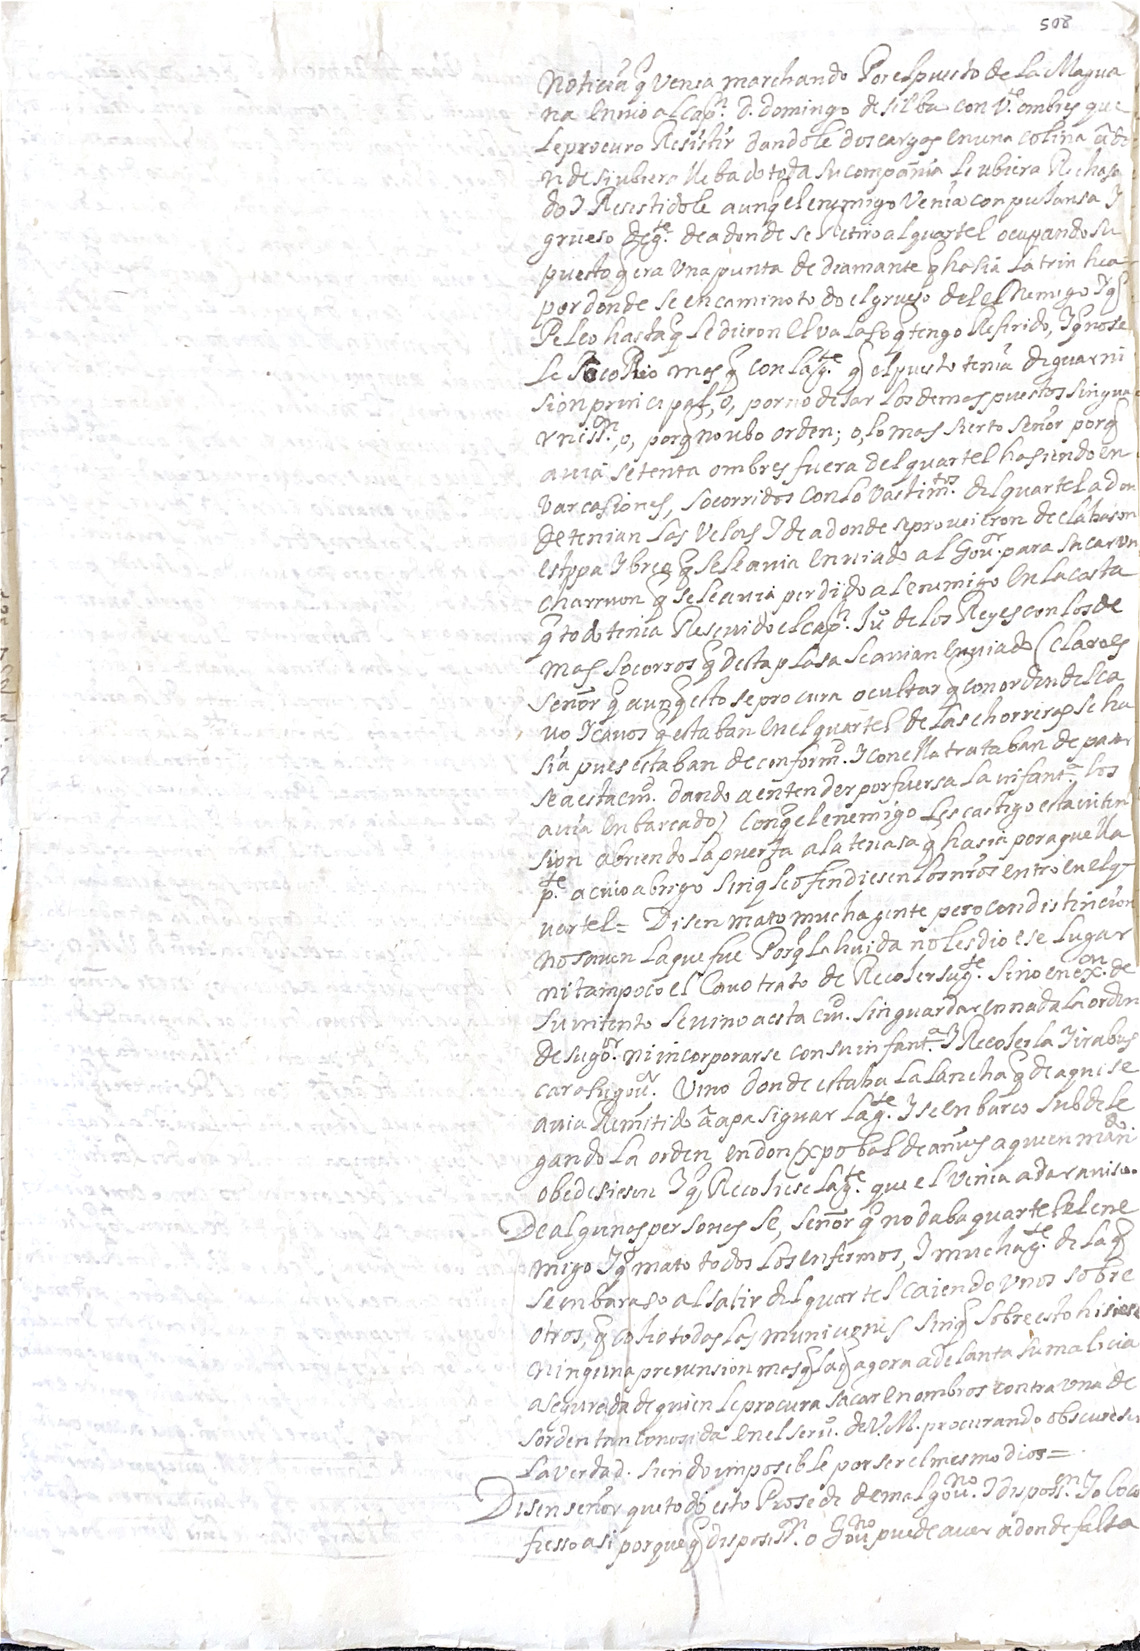 508
notiçia q̃ venia marchando Por el puesto de La Magua
na enuio al Capⁿ. D. Domingo de silba con Vᵗᵉ ombres que
le procuro Resistir dandole dos cargas en una colina ado
nde si ubiera llebado toda su compañia le ubiera Rechasa
do I Resistidole aunq̃ el enemigo Venia con pujansa I
grueso de gᵗᵉ. de a donde se Retiro al quartel ocupando su
puesto q̃ era Vna punta de diamante q̃ hasia La trinhea
por donde se encamino todo el grueso del el Enemigo I q̃
Peleo hasta q̃ le dieron el valaso q̃ tengo Referido, I q̃ no se
le SocoRio mas q̃ con la gᵗᵉ. q̃ el puesto tenia de guarni
sion principal, o, por no dejar los demas puestos sin gua
rnisⁿ., o, porq̃ no ubo orden; o, lo mas sierto Señor porq̃
auia setenta ombres fuera del quartel hasiendo en
varcasiones, socorridos con lo vastimᵗᵒˢ. del quartel a don
de tenian las Velas I de a donde se proueieron de clabason
estopa I brea q̃ se le auia enuiado al Gouʳ. para sacar un
charruon q̃ se le auia perdido al enemigo en la costa
q̃ todo tenia Reseuido el capⁿ. Juº de los Reyes con los de
mas socorros q̃ desta plasa se auian enuiado (claro es
señor q̃ aunq̃ esto se procura ocultar q̃ con orden del ca
uo I cauos q̃ estaban en el quartel de las chorreras se ha
sia pues estaban de conformᵈ. I con ella trataban de pasar
se a esta ciuᵈ. dando a entender por fuersa la infantᵃ. los
auia enbarcado) Conq̃ el enemigo les castigo esta inten
sion abriendo la puerta a la tenasa q̃ hasia por aquella
pᵗᵉ. a cuio abrigo sin q̃ le ofendiesen los nros entro en el q
uartel = Disen mato mucha gente pero con distincion
no sauen la que fue Porq̃ la huida no les dio ese lugar
ni tampoco el Cauo trato de Recojer su gᵗᵉ. sino en exⁿ. de
su intento se vino a esta ciuᵈ. sin guardar en nada la orden
de su goʳ. ni incorporarse con su infantᵃ. I Recojerla I ir a bus
car a su gouʳ. Vino donde estaba la lancha q̃ de aqui se
auia Remitido a apasiguar la gᵗᵉ. I se enbarco subdele
gando la orden en don Xpobal de anues a quien manᵈᵒ.
obedesiesen I q̃ Recojiese la gᵗᵉ. que el Venia a dar auiso.
De algunas personas Se, Señor q̃ no daba quartel el ene
migo I q̃ mato todos los enfermos, I mucha gᵗᵉ. de la q̃
se enbaraso al salir del quartel caiendo unos sobre
otros, q̃ cojio todas las municiones sin q̃ sobre esto hisiese
ninguna preuension mas q̃ la q̃ agora adelanta su malicia
asegurada de quien le procura sacar en ombros contra una de
sorden tan conosida en el seruᵒ. de V.M. procurando obscureser
la verdad. siendo imposible por ser el mesmo dios =
Disen señor que todo esto Prosede de mal gouⁿᵒ. I disposⁿ. I lo co
fiesso asi porque q̃ disposisⁿ. o Gouⁿᵒ puede auer adonde falta